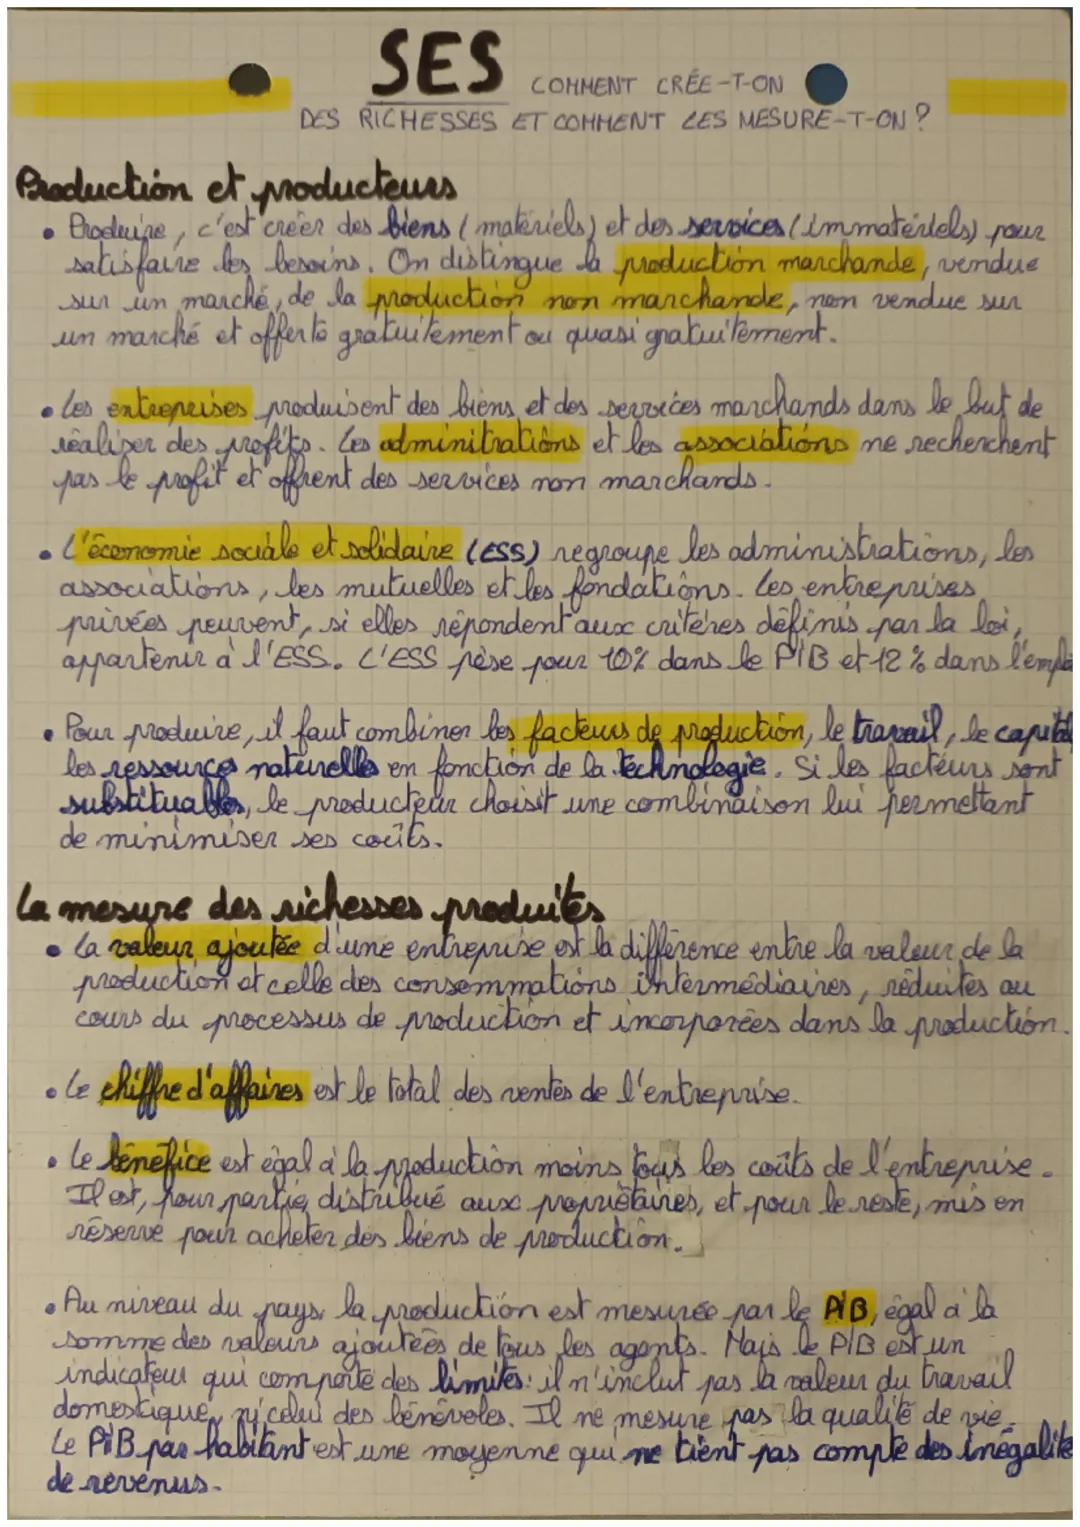 SES COMMENT CRÉE-T-ON
DES RICHESSES ET COMMENT LES MESURE-T-ON ?
Production et producteurs
• Produire, c'est créer des biens (matériels) et des services (immatériels) pour
satisfaire les besoins. On distingue la production marchande, vendue
sur un marché, de la production non marchande, non vendue sur
un marché et offerte gratuitement ou quasi gratuitement.
• Les entreprises produisent des biens et des services marchands dans le but de
réaliser des profits. Les adminitrations et les associations ne recherchent
pas le profit et offrent des services non marchands.
• L'économie sociale et solidaire (ESS) regroupe les administrations, les
associations, les mutuelles et les fondations. Les entreprises
privées peuvent, si elles répondent aux critères définis par la loi,
appartenir à l'ESS. L'ESS pèse pour 10% dans le PIB et 12% dans l'emploi
• Pour produire, il faut combiner les facteurs de production, le travail, le capital
les ressources naturelles en fonction de la technologie. Si les facteurs sont
substituables, le producteur choisit une combinaison lui permettant
de minimiser ses coûts.
La mesure des richesses produites
• La valeur ajoutée d'une entreprise est la différence entre la valeur de la
production et celle des consommations intermédiaires, réduites au
cours du processus de production et incorporées dans la production.
• Le chiffre d'affaires est le total des ventes de l'entreprise.
• Le bénéfice est égal à la production moins tous les coûts de l'entreprise.
Il est, pour partie, distribué aux propriétaires, et pour le reste, mis en
réserve pour acheter des biens de production.
• Au niveau du pays, la production est mesurée par le PIB, égal à la
somme des valeurs ajoutées de tous les agents. Mais le PIB est un
indicateur qui comporte des limites: il n'inclut pas la valeur du travail
domestique, ni celui des bénévoles. Il ne mesure pas la qualité de vie.
Le PIB par habitant est une moyenne qui ne tient pas compte des inégalité
de revenus.